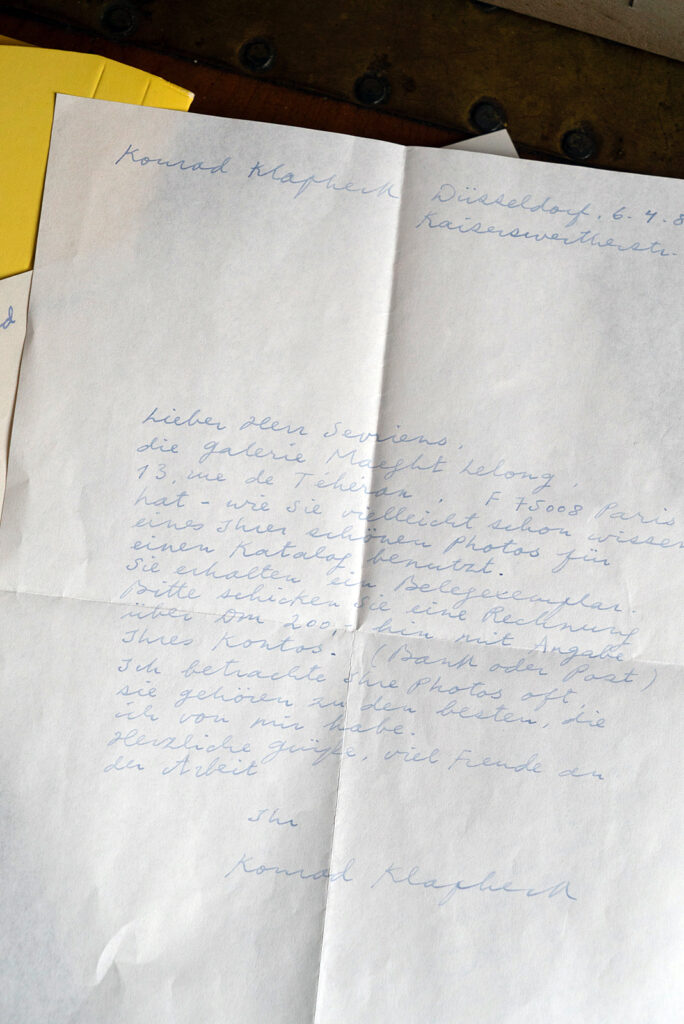 Konrad Klapheck
Düsseldorf, 6.4.8
Kaiserswertherstr.
Lieber Herr Sevriens,
die galerie Maeght Lelong,
13, rue de Téhéran, F 75008 Paris
hat - wie Sie vielleicht schon wissen
eines Ihrer schönen Photos für
einen Katalog benutzt.
Sie erhalten ein Belegexemplar.
Bitte schicken Sie eine Rechnung
über DM 200,- hin mit Angabe
Ihres Kontos. (Bank oder Post)
Ich betrachte Ihre Photos oft,
sie gehören zu den besten, die
ich von mir habe.
Herzliche grüße, viel Freude an
der Arbeit
Ihr
Konrad Klapheck